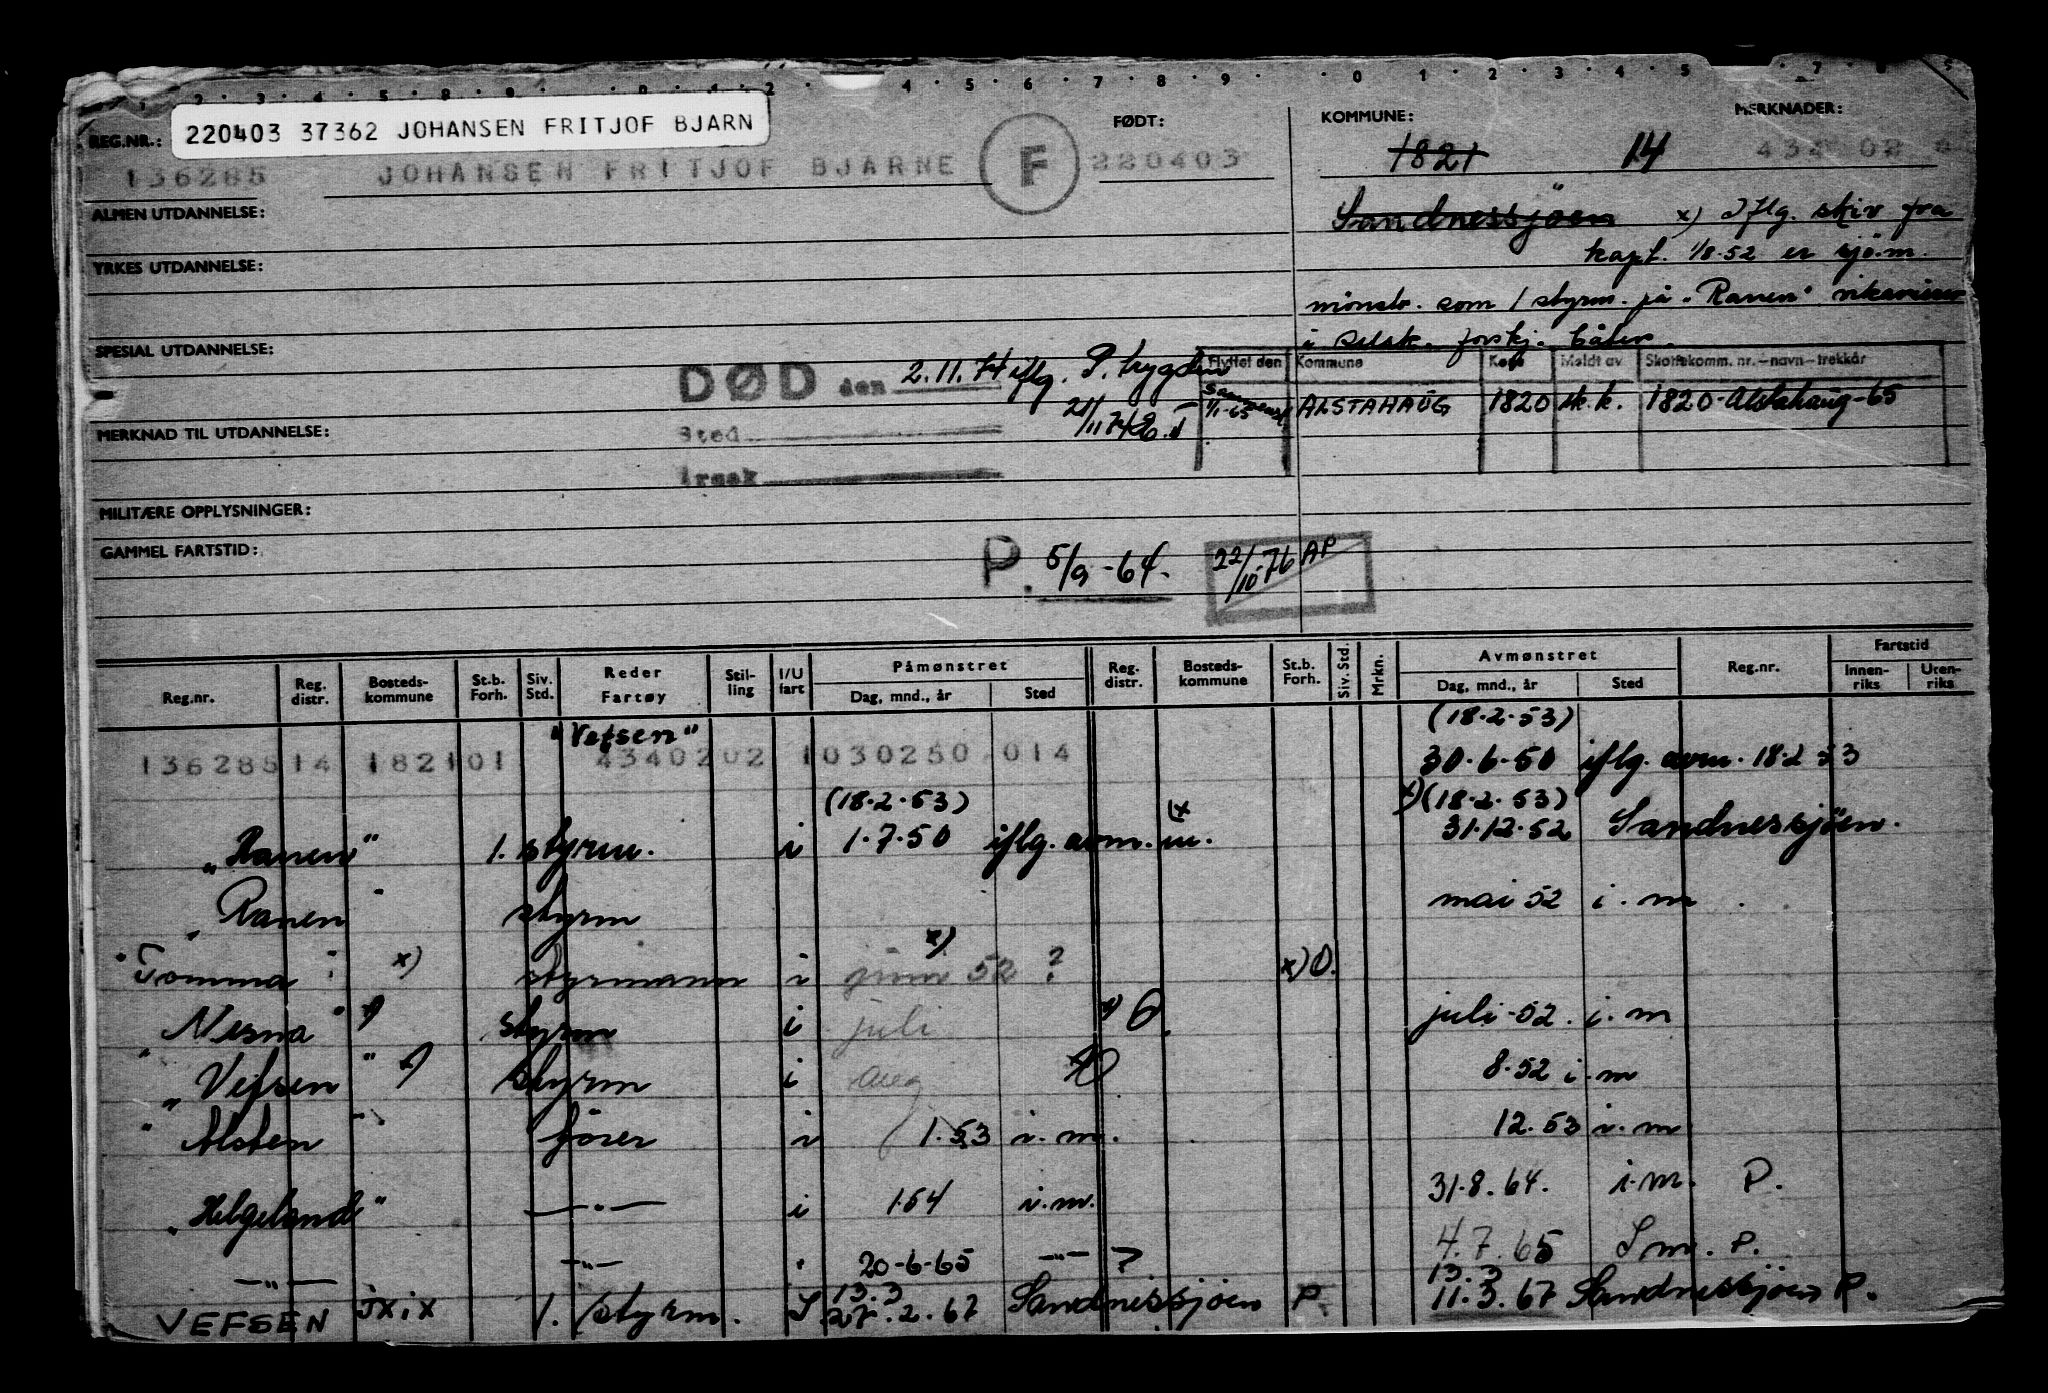 220403 37362 JOHANSEN FRITJOF BJARN
REG.NR.:
FØDT:
KOMMUNE:
MERKNADER:
136285 JOHANSEN FRITJOF BJARNE F 220403
1821 14
ALMEN UTDANNELSE:
Sandnessjöen x) Iflg. skiv fra
kapt. 1/8-52 er sjö.m.
YRKES UTDANNELSE:
mönstr. som 1 styrm. på "Ranen"
i selsk. forskj. båter.
SPESIAL UTDANNELSE:
DØD den 2.11.74 iflg. P. trygden
21/11 74
Sted
Årsak
Flyttet den Kommune Kode Meldt av Skattekomm. nr.-navn-trekkår
1/1-65 ALSTAHAUG 1820 sk.k. 1820-Alstahaug-65
MERKNAD TIL UTDANNELSE:
MILITÆRE OPPLYSNINGER:
GAMMEL FARTSTID:
P. 5/9-64. 22/10-76 AP
Reg.nr. Reg. distr. Bosteds-kommune St.b. Forh. Siv. Std. Reder Fartøy Stil-ling I/U fart Påmønstret Dag, mnd., år Sted Reg. distr. Bosteds-kommune St.b. Forh. Siv. Std. Mrkn. Avmønstret Dag, mnd., år Sted Reg.nr. Fartstid Innen-riks Uten-riks
"Vefsen" (18-2-53)
136285 14 182101 4340202 1030250 014 30-6-50 iflg. avm. 18-2-53
(18-2-53) x) (18-2-53)
"Ranen" 1. styrm. i 1-7-50 iflg. avm. m. 31-12-52 Sandnessjöen.
"Ranen" styrm mai 52 i.m.
"Tomma" x) styrmann i x) juni 52 ? x) O.
"Nesna" styrm i juli juli-52. i.m
"Vefsen" styrm i aug 8-52 i.m
"Alsten" förer i 1.53 i.m. 12.53 i.m
"Helgeland" —"— i 1.54 i.m. 31-8.64. i.m. P.
—"— —"— 20-6-65 —"— ? 4.7.65 P.
13.3 13.3
VEFSEN 1. styrm. 27.2.67 Sandnessjöen P. 11.3.67 Sandnessjöen P.